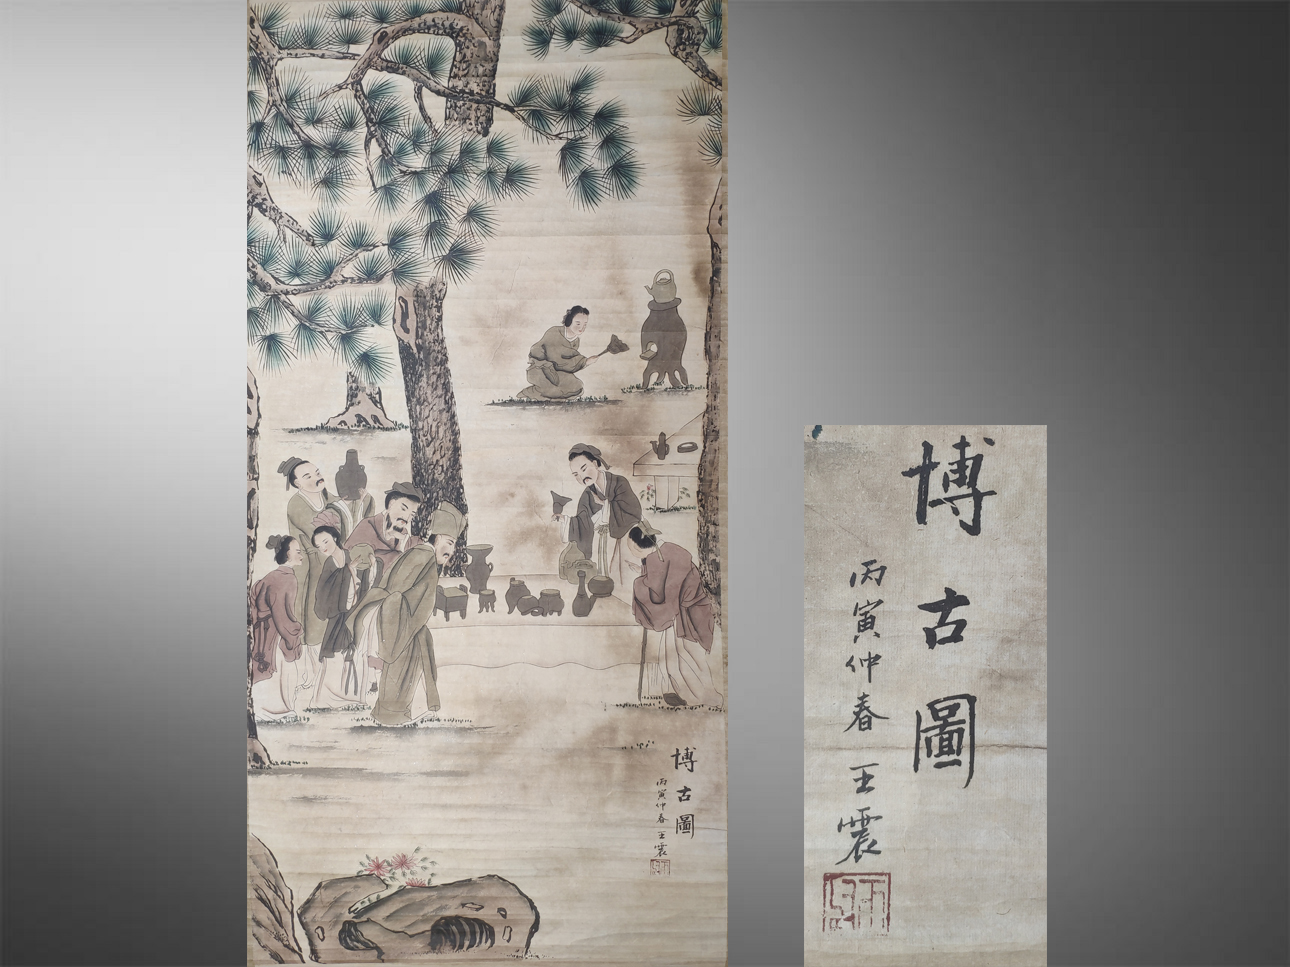 博古圖
丙寅仲春 王震
博古圖
丙寅仲春 王震